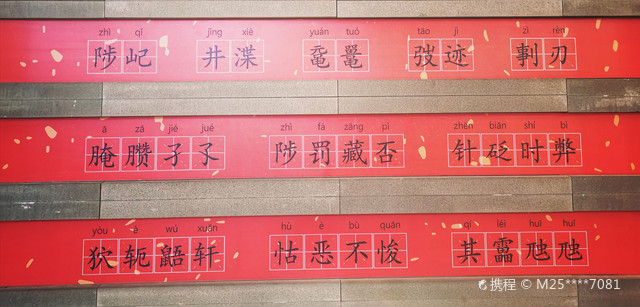 zhì qǐ jǐng xiè yuán tuó tāo jì zì rèn
陟屺 井渫 鼋鼍 弢迹 剚刃
ā zā jié jué zhì fá zāng pǐ zhēn biān shí bì
腌臜孑孓 陟罚藏否 针砭时弊
yòu è wú xuān hù è bù quān qí léi huī huī
狖轭鼯轩 怙恶不悛 其靁虺虺
携程 © M25****7081